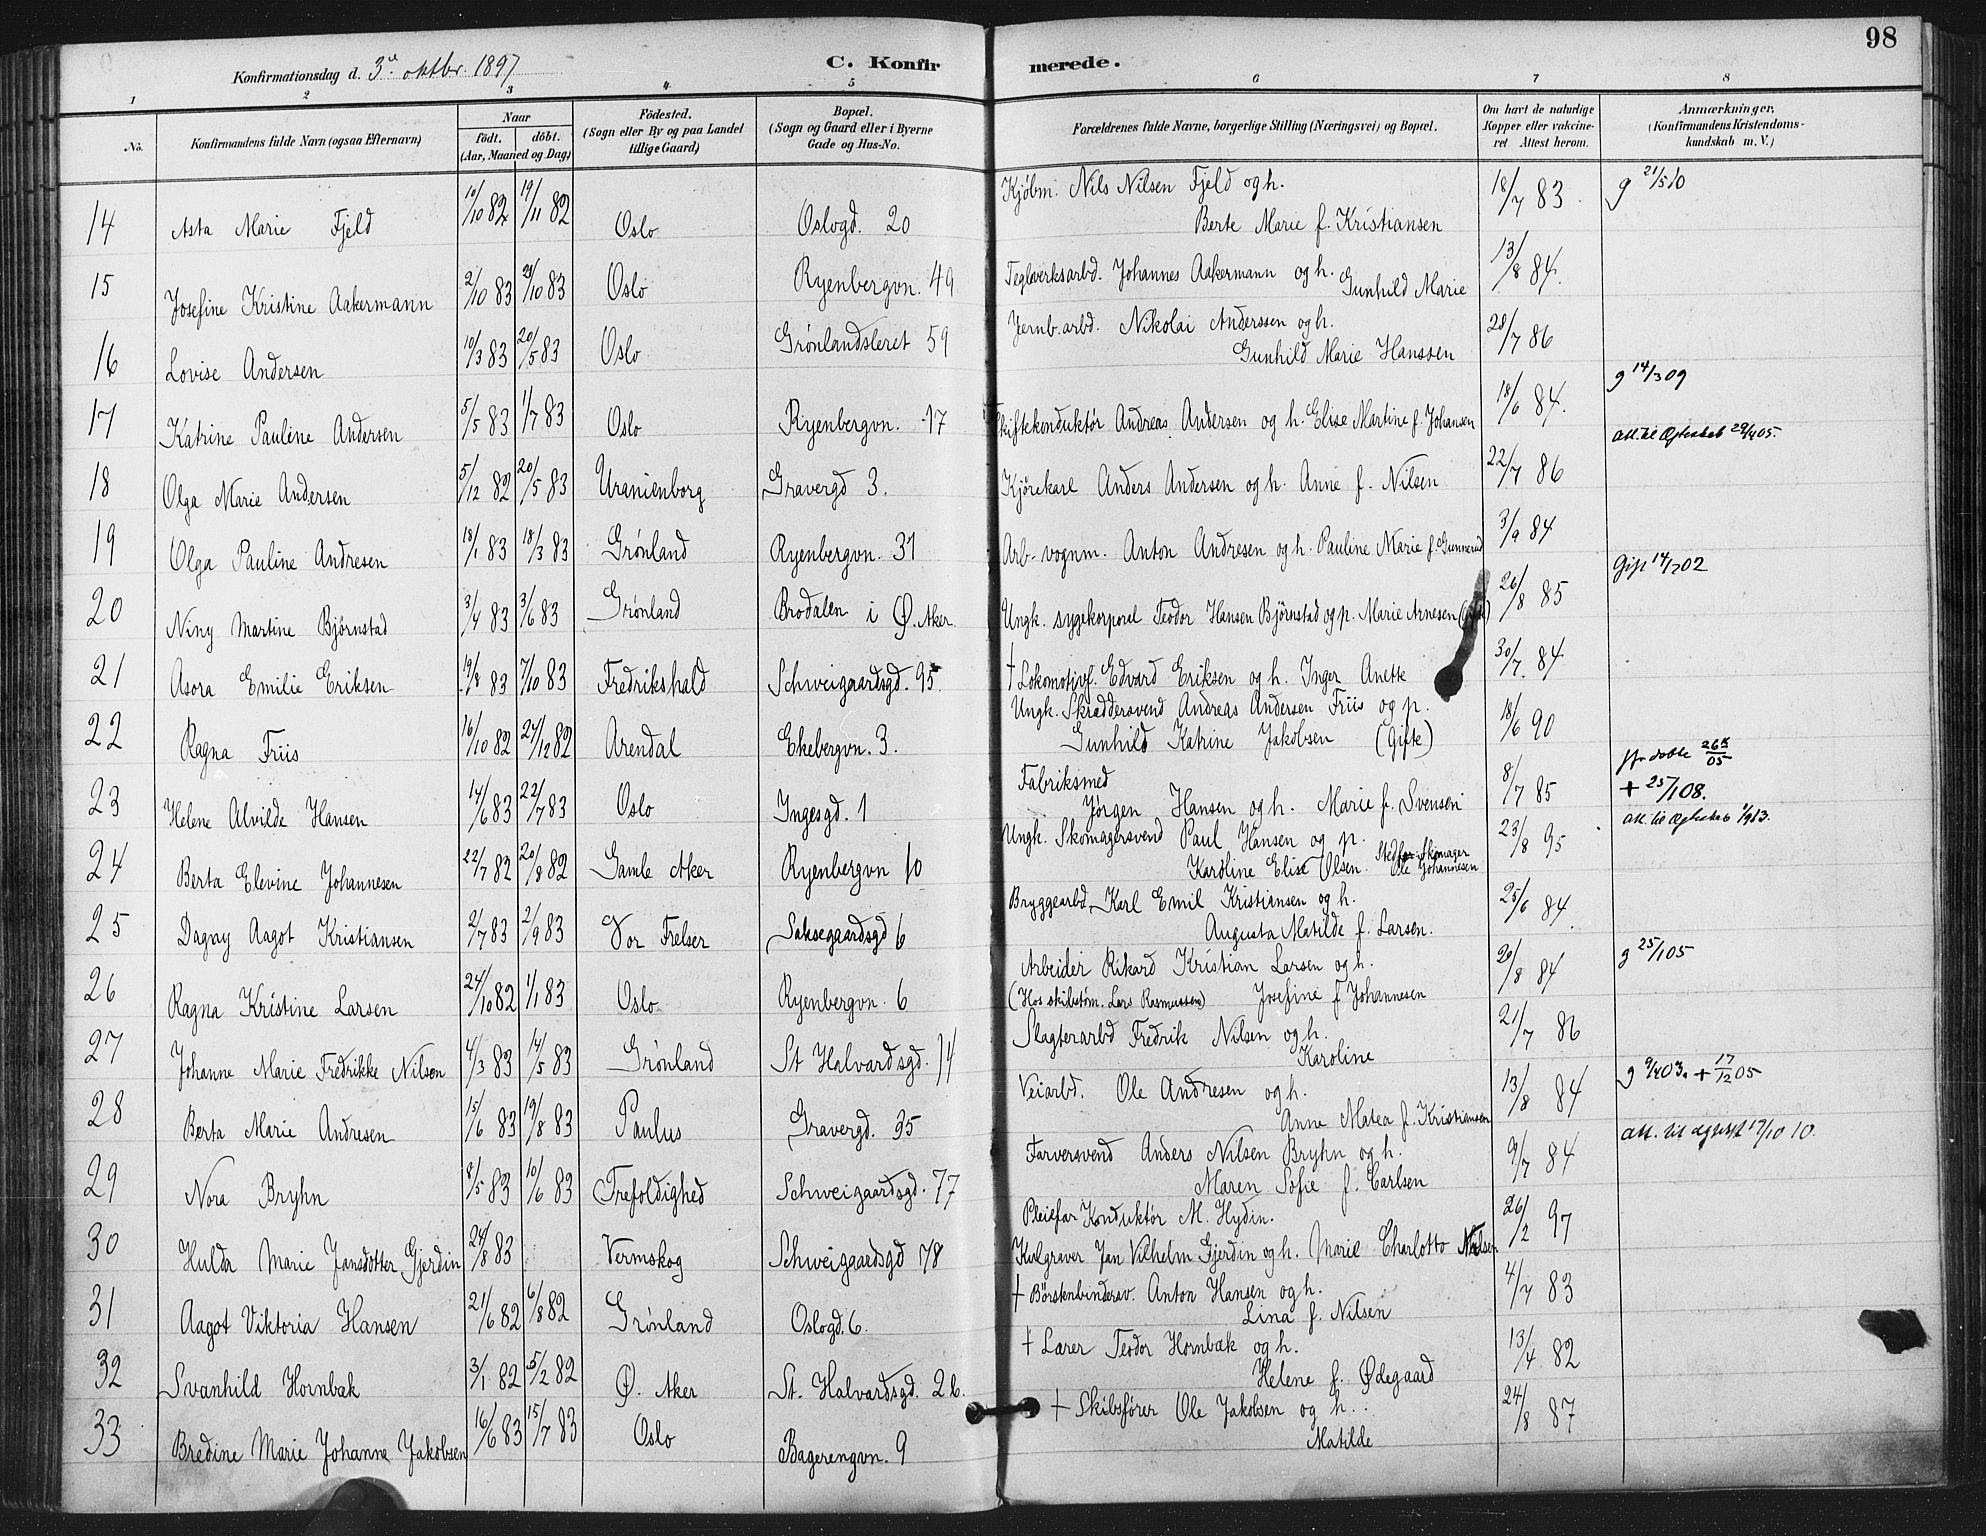 98
Konfirmationsdag d. 3die oktbr. 1897 C. Konfirmerede.
1 2 3 4 5 6 7 8
No. Konfirmandens fulde Navn (ogsaa Efternavn) Naar født. døbt. (Aar, Maaned og Dag) Fødested. (Sogn eller By og paa Landet tillige Gaard) Bopæl. (Sogn og Gaard eller i Byerne Gade og Hus-No. Forældrenes fulde Navne, borgerlige Stilling (Næringsvei) og Bopæl. Om havt de naturlige Kopper eller vakcineret. Attest herom. Anmærkninger, (Konfirmandens Kristendomskundskab m. V.)
14 Asta Marie Fjeld 10/10 82 19/11 82 Oslo Oslogd. 20 Kjøbm. Nils Nilsen Fjeld og h. 18/7 83 g 21/5 10
Berte Marie f. Kristiansen
15 Josefine Kristine Aakermann 2/10 83 /10 83 Oslo Ryenbergvn. 49 Teglverksarbd. Johannes Aakermann og h. Gunhild Marie 13/8 84.
16 Lovise Andersen 10/3 83 20/5 83 Oslo Grønlandsleret 59 Jernb.arbd. Nikolai Anderssen og h. 28/7 86
Gunhild Marie Hanssen
17 Katrine Pauline Andersen 5/5 83 1/7 83 Oslo Ryenbergvn. 17 Skiftekonduktør Andreas Andersen og h. Elise Martine f. Johansen 18/6 84. g 14/3 09
18 Olga Marie Andersen 5/12 82 20/5 83 Uranienborg Gravergd 3. Kjørekarl Anders Andersen og h. Anne f. Nilsen 22/7 86 att. til Ægteskab 29/4 05.
19 Olga Pauline Andresen 18/1 83 18/3 83 Grønland Ryenbergvn. 31 Arb- vognm. Anton Andresen og h. Pauline Marie f. Gunnerud 3/9 84
20 Niny Martine Bjørnstad 3/4 83 3/6 83 Grønland Brodalen i Ø. Aker. Ungk. sygekorporal Teodor Hansen Bjørnstad og p. Marie Arnesen 26/8 85 Gift 14/7 02
21 Asora Emilie Eriksen 19/8 83 7/10 83 Fredrikshald Schweigaardsgd. 95. † Lokomotivf. Edvard Eriksen og h. Inger Anette 30/7. 84.
22 Ragna Friis 16/10 82 27/12 82 Arendal Ekebergvn. 3. Ungk. Skræddersvend Andreas Andersen Friis og p. 18/6 90
Gunhild Katrine Jakobsen (Gifte)
23 Helene Alvilde Hansen 14/6 83 22/7 83 Oslo Ingesgd. 1 Fabriksmed 8/7 85
Jørgen Hansen og h. Marie f. Svensen + 25/1 08.
24 Berta Elevine Johannesen 22/7 82 20/8 82 Gamle Aker Ryenbergvn 10 Ungk. Skomagersvend Paul Hansen og p. 23/8 95 att. til Ægteskab 1/9 13.
Karoline Elise Olsen. Stedfar Skomager Ole Johannesen
25 Dagny Aagot Kristiansen 2/7 83 2/9 83 Vor Frelser Saksegaardsgd 6 Bryggearbd. Karl Emil Kristiansen og h. 25/6 84.
Augusta Matilde f. Larsen.
26 Ragna Kristine Larsen 24/10 82 1/1 83 Oslo Ryenbergvn. 6 Arbeider Rikard Kristian Larsen og h. 20/8 84 g 25/1 05
(Hos skibstøm. Lars Rasmussen) Josefine f. Johannesen
27 Johanne Marie Fredrikke Nilsen 4/3 83 14/5 83 Grønland St Halvardsgd. 14 Slagterarbd Fredrik Nilsen og h. 21/7 86
Karoline
28 Berta Marie Andresen 15/6 83 19/8 83 Paulus Gravergd. 35 Veiarbd. Ole Andresen og h. 13/8 84 g 9/4 03. + 17/12 05
Anne Matea f. Kristiansen
29 Nora Bryhn 8/5 83 10/6 83 Trefoldighed Schweigaardsgd. 77 Farversvend Anders Nilsen Bryhn og h. 9/7 84 att. til ægtesk 17/10 10.
Maren Sofie f. Carlsen
30 Hulda Marie Jansdotter Gjerdin 24/8 83 Vermskog Schweigaardsgd 78 Pleiefar Konduktør M. Hydin. 26/2 97
Kulgraver Jan Vilhelm Gjerdin og h. Marie Charlotto Nilsen
31 Aagot Viktoria Hansen 21/6 82 6/8 82 Grønland Oslogd. 6. † Børstenbindersv. Anton Hansen og h. 4/7 83
Lina f. Nilsen
32 Svanhild Hornbæk 3/1 82 5/2 82 Ø. Aker St. Halvardsgd. 26. † Lærer Teodor Hornbæk og h. 13/4 82
Helene f. Ødegaard
33 Bredine Marie Johanne Jakobsen 16/6 83 15/7 83 Oslo Bagerengvn. 9 † Skibsfører Ole Jakobsen og h. 24/8 87
Matilde